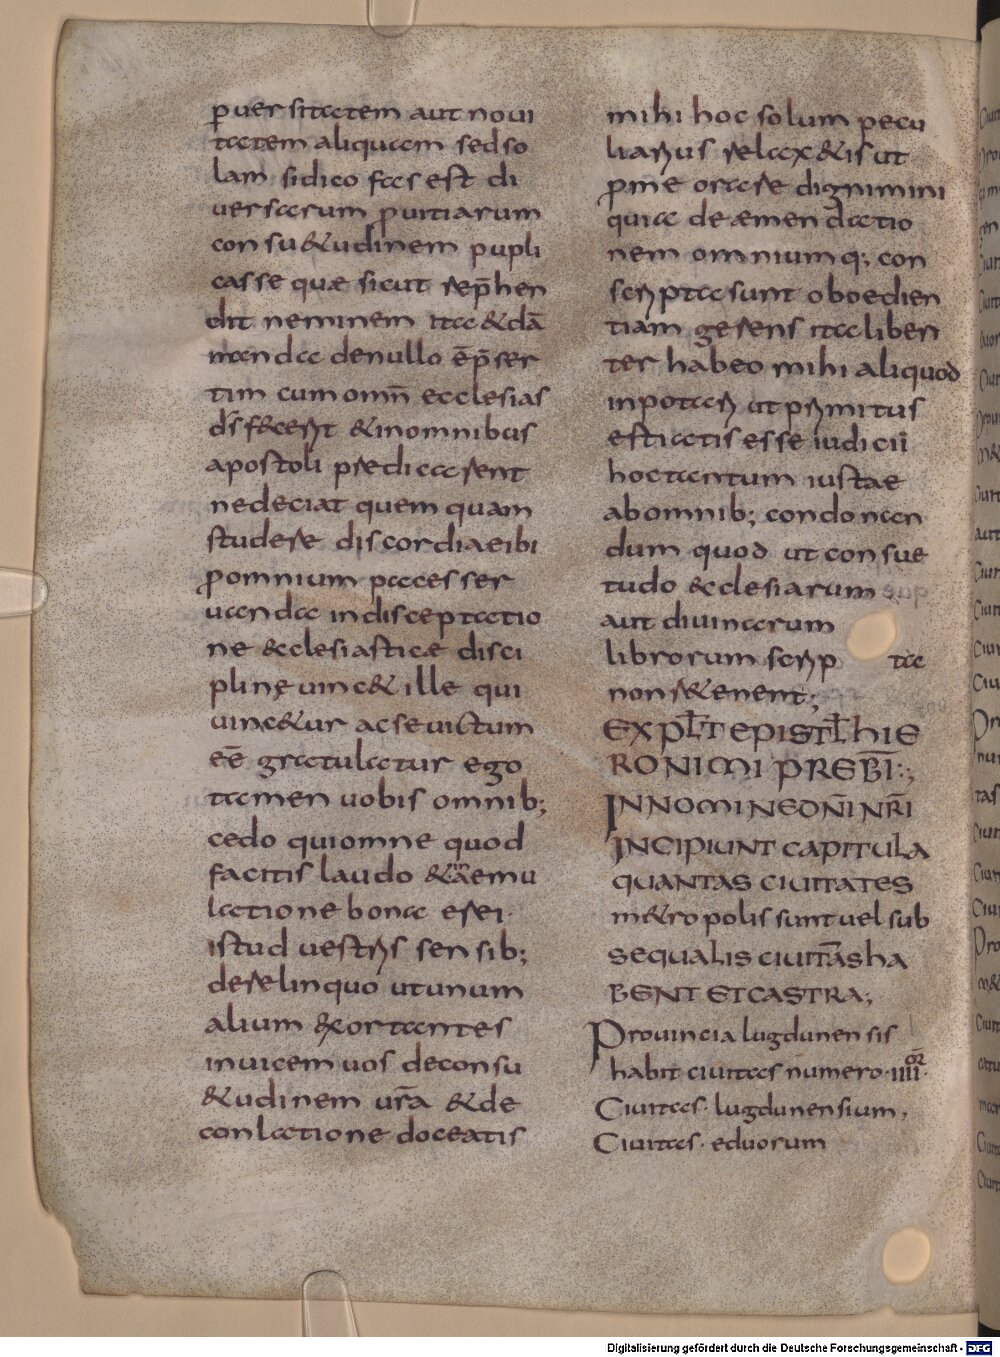 ꝑuersitatem aut noui
tatem aliquam sed so
lam si dico fas est di
uersarum ꝓuitiarum
consu&udinem pupli
casse quae sicut rep̄hen
dit neminem ita &dā
manda de nullo ēp̄ser
tim cum omn̄ ecclesias
dr̄s f&cerit &inomnibus
apostoli predicarent
nedeciat quem quam
studere discordiae ibi
ꝓomnium paces ser
uanda in disceptatio
ne &clesiasticae disci
plinę uinc& ille qui
uinc&ur ac se uictum
eē gratulatur ego
tamen uobis omnib;
cedo qui omne quod
facitis laudo &āemu
latione bona eſei·
istud uestris sensib;
derelinquo ut unum
alium &ortantes
inuicem uos de consu
&udinem ur̄a &de
conlatione doceatis
mihi hoc solum pecu
liarius relax&is ut
p me orare dignimini
quia de aemendatio
nem omnium q; con
scripta sunt oboedien
tiam gerens ita liben
ter habeo mihi aliquod
inpotari ut primitus
esti catis esse iudicii
hoc tantum iustae
ab omnib; condonan
dum quod ut consue
tudo &clesiarum
aut diuinarum
librorum scrip ta
non r&enent;
EXPL̄T EPISTL̄ hIE
RONIMI PREBĪ:;
IN NOMINE DN̄I NR̄I
INCIPIUNT CAPITULA
QUANTAS CIUITATES
m&ropolis sunt uel sub
sequalis ciuitās ha
BENT ET CASTRA;
Prouincia lugdunensis
habit ciuitas numero·iiii·
Ciuitas· lugdunensium,
Ciuitas· eduorum
Digitalisierung gefördert durch die Deutsche Forschungsgemeinschaft - DFG